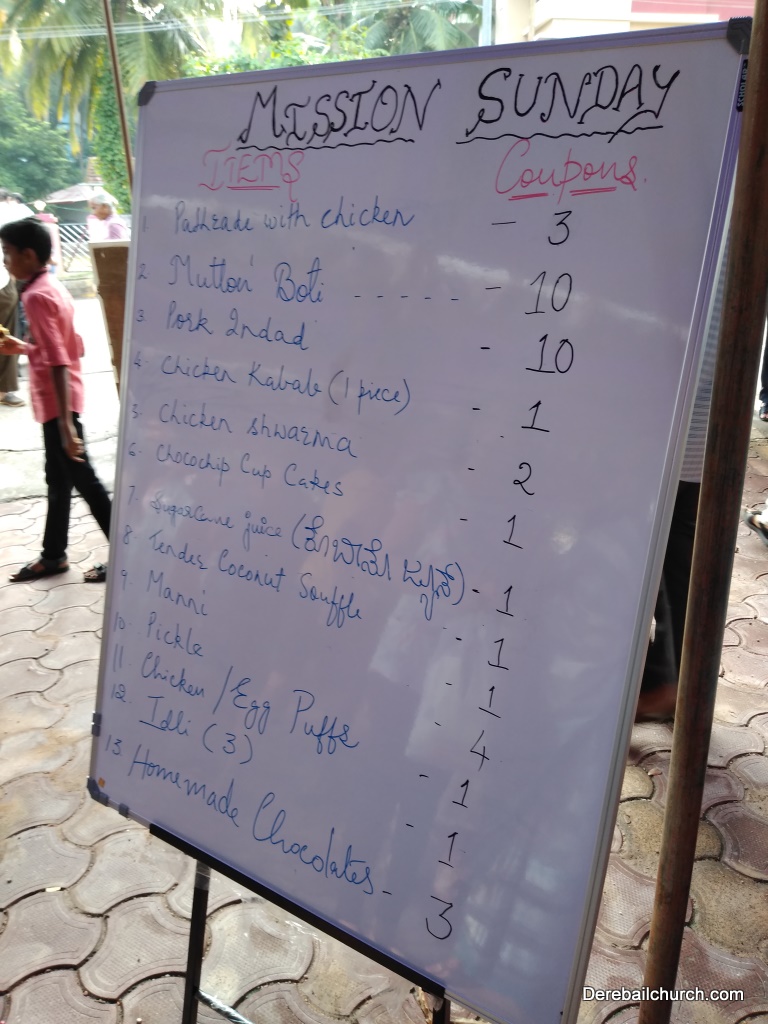 MISSION SUNDAY
ITEMS Coupons.
1. Pathrade with chicken - 3
2. Mutton Boti ----- - 10
3. Pork Indad - 10
4. Chicken Kabab (1 piece) - 1
5. Chicken shwarma - 2
6. Chocochip Cup Cakes - 1
7. Sugarcane juice ( ) - 1
8. Tender Coconut Souffle - 1
9. Manni - 1
10. Pickle - 4
11. Chicken / Egg Puffs - 1
12. Idli (3) - 1
13. Homemade Chocolates - 3
Derebailchurch.com